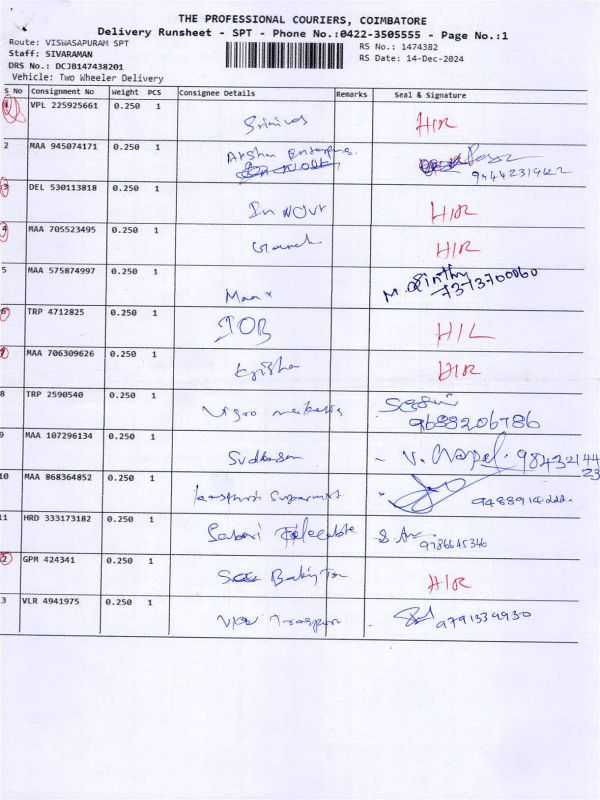 THE PROFESSIONAL COURIERS, COIMBATORE
Delivery Runsheet - SPT - Phone No.:0422-3505555 - Page No.:1
Route: VISWASAPURAM SPT
RS No.: 1474382
Staff: SIVARAMAN
RS Date: 14-Dec-2024
DRS No.: DCJB147438201
Vehicle: Two Wheeler Delivery
S No Consignment No Weight PCS Consignee Details Remarks Seal & Signature
1 VPL 225925661 0.250 1 Srinivas H/R
2 MAA 945074171 0.250 1
3 DEL 530113818 0.250 1 H/R
4 MAA 705523495 0.250 1 H/R
5 MAA 575874997 0.250 1 7373700060
6 TRP 4712825 0.250 1 IOB H/L
7 MAA 706309626 0.250 1 Krisha H/R
8 TRP 2590540 0.250 1 9688206786
9 MAA 107296134 0.250 1 Sudharsan
10 MAA 868364852 0.250 1
11 HRD 333173182 0.250 1 Sabari 9786645346
12 GPM 424341 0.250 1 H/R
13 VLR 4941975 0.250 1 9791339930